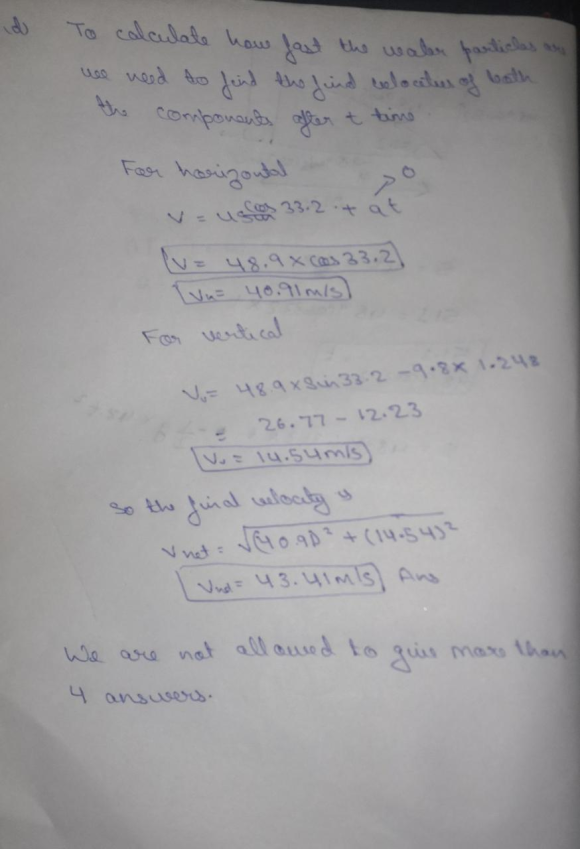 d) To calculate how fast the water particles are
we need to find the find velocities of both
the components after t time.
For horizontal
0
V = u cos 33.2 + at
V = 48.9 x cos 33.2
Vn = 40.91 m/s
For vertical
Vv = 48.9 x Sin 33.2 - 9.8 x 1.248
= 26.77 - 12.23
Vv = 14.54 m/s
So the final velocity is
Vnet = √(40.91)² + (14.54)²
Vnet = 43.41 m/s Ans
We are not allowed to give more than
4 answers.